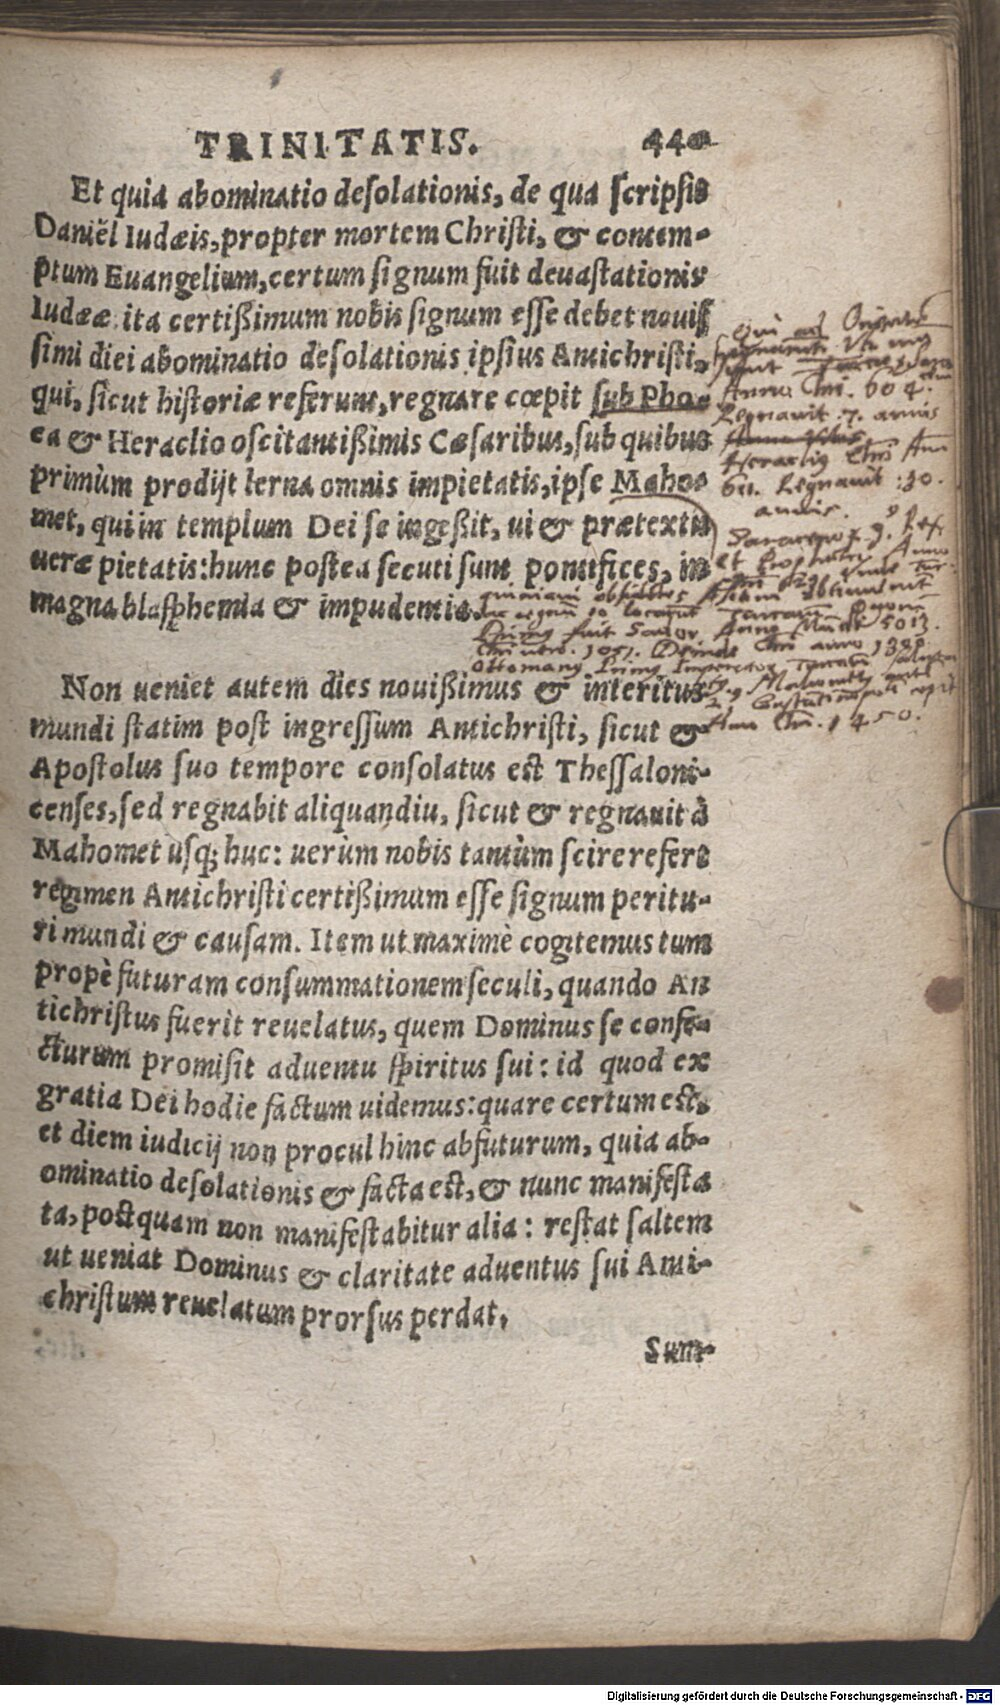 TRINITATIS. 440
Et quia abominatio desolationis, de qua scripsit
Daniël Iudæis, propter mortem Christi, & contem-
ptum Euangelium, certum signum fuit deuastationis
Iudææ ita certißimum nobis signum esse debet nouis
simi diei abominatio desolationis ipsius Antichristi,
qui, sicut historiæ referunt, regnare cœpit sub Pho-
ca & Heraclio oscitantißimis Cæsaribus, sub quibus
primùm prodijt lerna omnis impietatis, ipse Maho-
met, qui in templum Dei se ingeßit, ui & prætextu
ueræ pietatis: hunc postea secuti sunt pontifices, in
magna blasphemia & impudentia.
Non ueniet autem dies nouißimus & interitus
mundi statim post ingressum Antichristi, sicut &
Apostolus suo tempore consolatus est Thessaloni-
censes, sed regnabit aliquandiu, sicut & regnauit à
Mahomet usq; huc: uerùm nobis tantùm scire refert
regimen Antichristi certißimum esse signum peritu-
ri mundi & causam. Item ut maximè cogitemus tum
propè futuram consummationem seculi, quando An
tichristus fuerit reuelatus, quem Dominus se confe-
cturum promisit aduentu spiritus sui: id quod ex
gratia Dei hodie factum uidemus: quare certum est,
et diem iudicij non procul hinc abfuturum, quia ab-
ominatio desolationis & facta est, & nunc manifesta
ta, postquam non manifestabitur alia: restat saltem
ut ueniat Dominus & claritate aduentus sui Anti-
christum reuelatum prorsus perdat.
Sum-
Anno Chri. 604.
Regnauit .7. annis
Regnauit :30.
annis.
fuit Anno Mundi 5013.
1051. Deinde Chri anno 1300
Ann Chri. 1450.
Digitalisierung gefördert durch die Deutsche Forschungsgemeinschaft - DFG